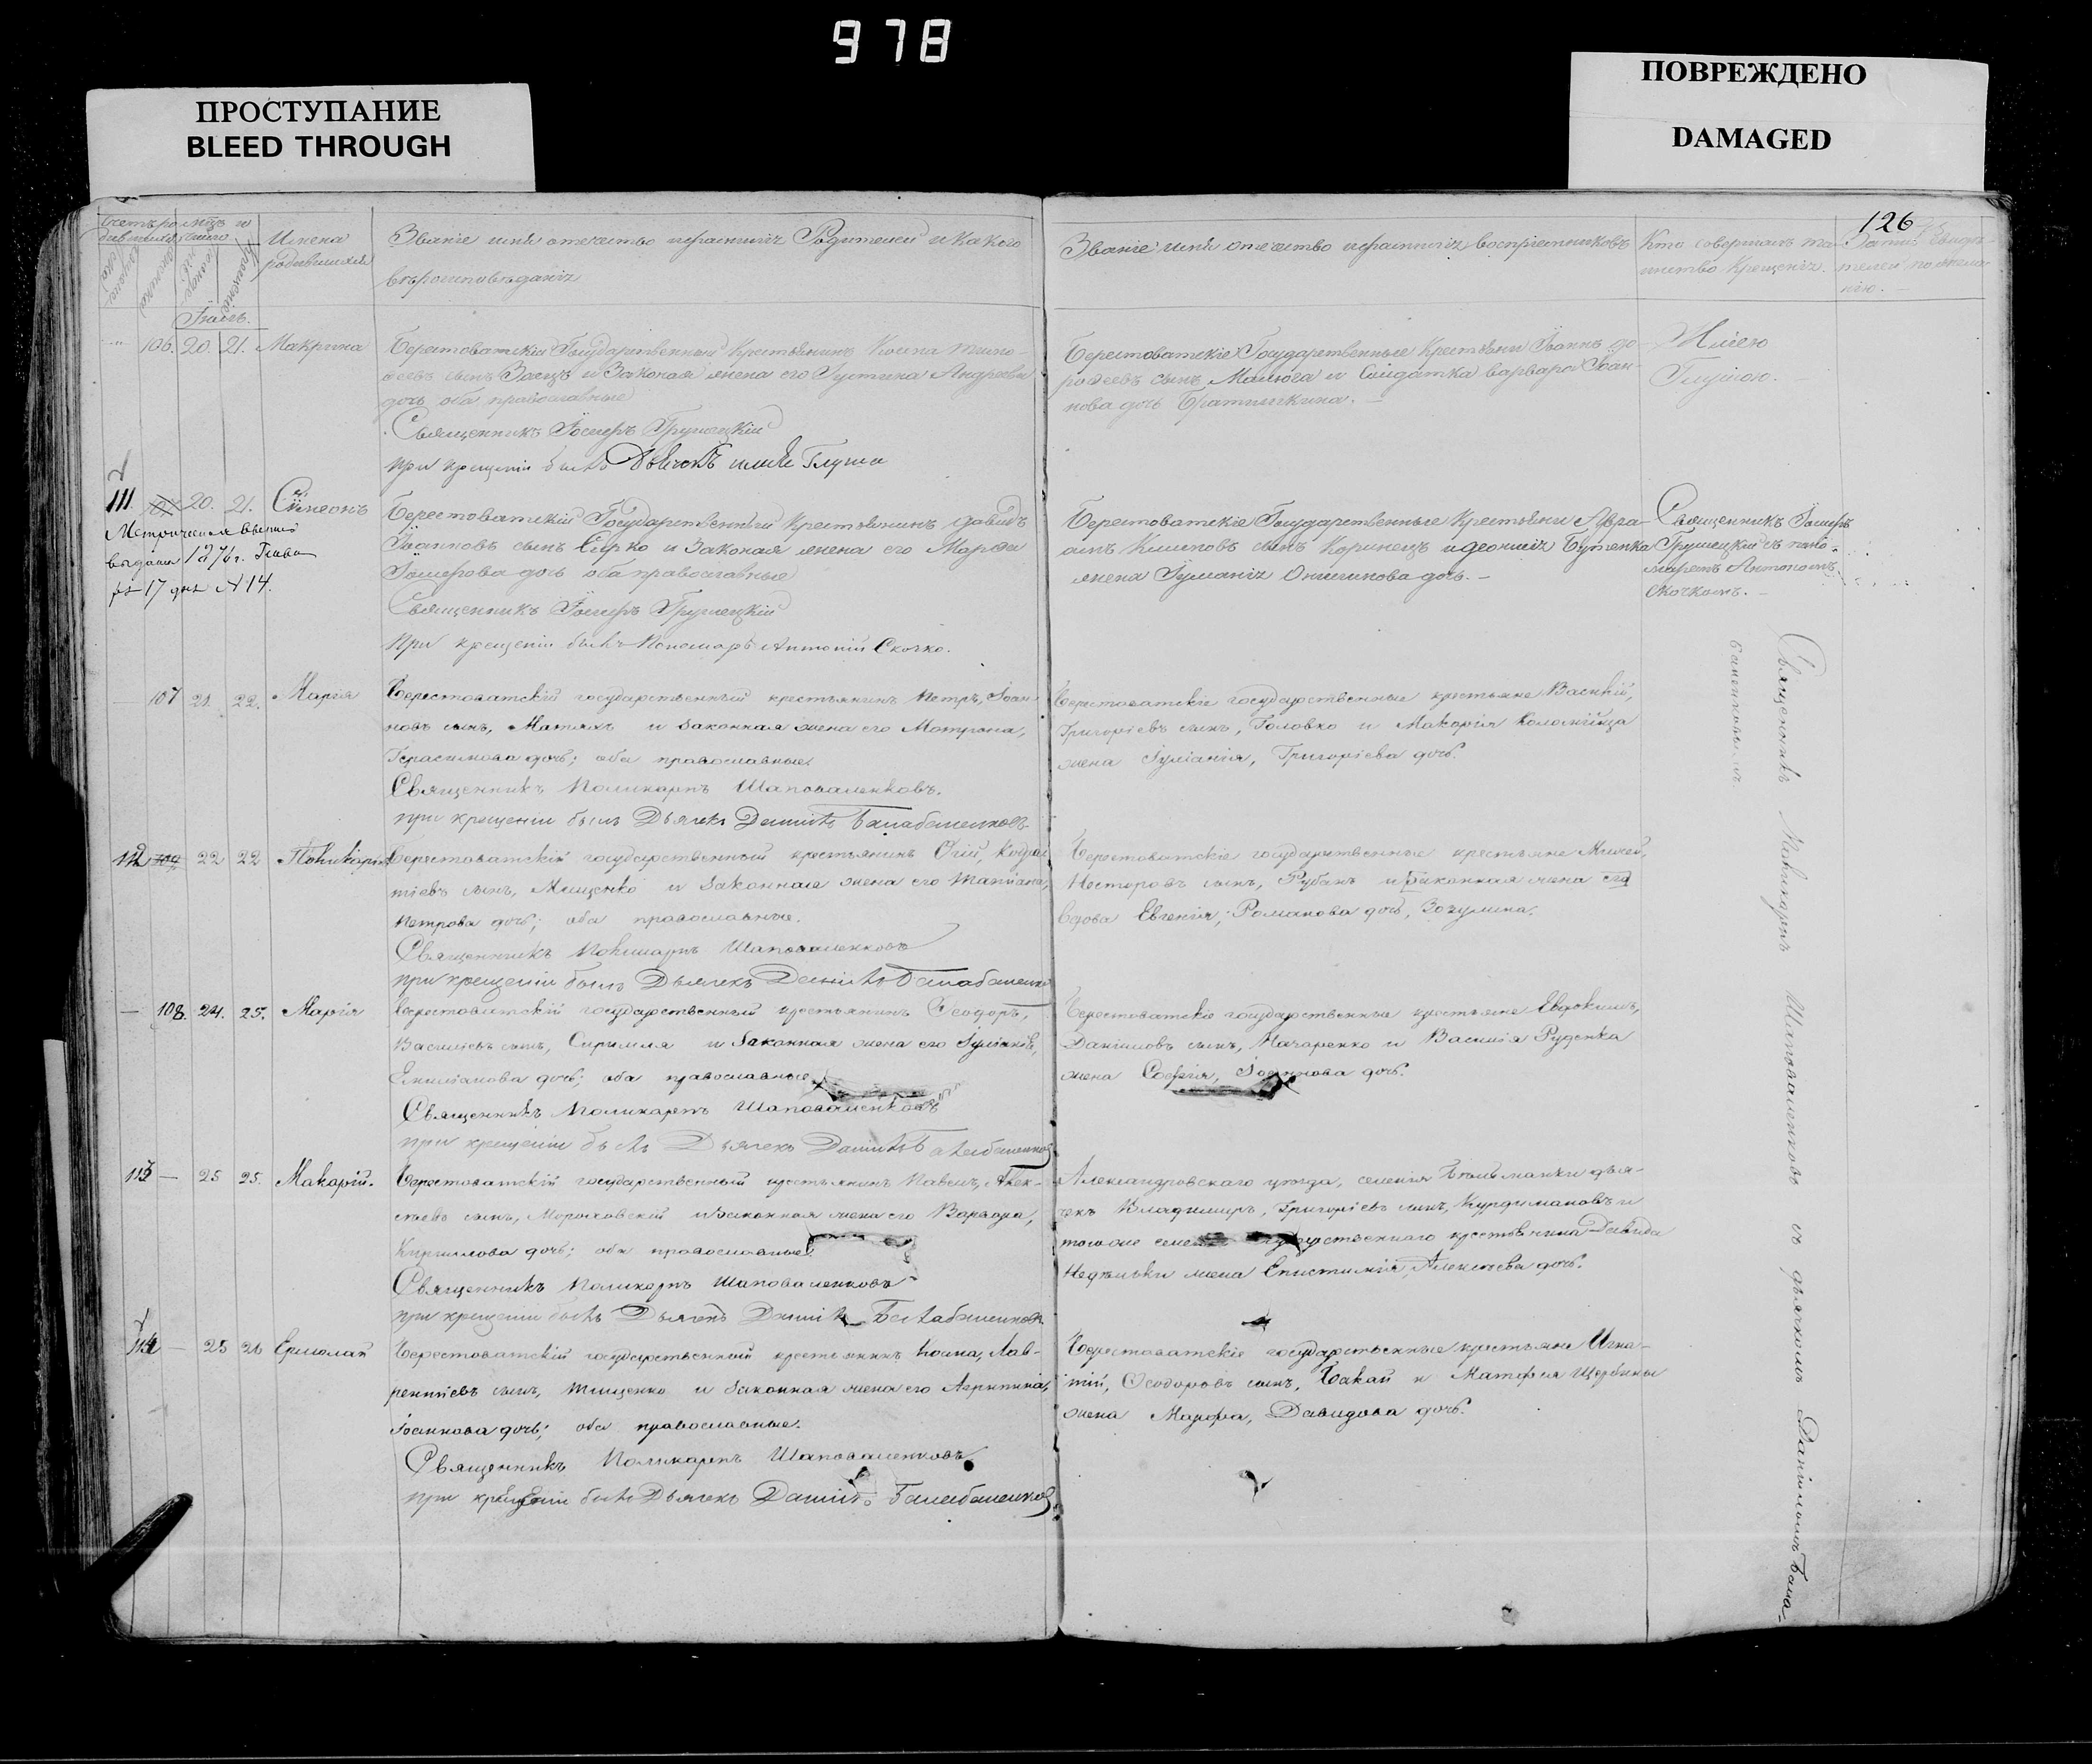 978
ПРОСТУПАНИЕ
BLEED THROUGH
ПОВРЕЖДЕНО
DAMAGED
126
Имена
родившихся
Званіе имя отчество родителей и какого
вѣроисповѣданія
Званіе имя отчество воспріемниковъ
Кто совершалъ та-
инство Крещенія.
Іюль.
106. 20. 21. Макрина
Берестоватскій Государственный Крестьянинъ Косма
сынъ Заецъ и Законая жена его Іустина Андреева
дочь оба православные
Священникъ Іосифъ Грушецкій
при крещеніи былъ Глуша
Берестоватскіе Государственные Крестьяни Іоаннъ
сынъ Малюга и Солдатка варвара Іоан-
нова дочь
Глушою.
111. 107 20. 21. Сѵмеонъ
Метрическая выпись
выдана 1876 г.
17 дня №14.
Берестоватскій Государственный Крестьянинъ Давидъ
Іоанновъ сынъ Сирко и Законая жена его Марѳа
Іосифова дочь оба православные
Священникъ Іосифъ Грушецкій
При крещеніи былъ Пономарь Антоній Скочко.
Берестоватскіе Государственные Крестьяни Авра-
амъ сынъ Коринецъ и Діонисія Бутенка
жена Іуліанія дочь.
Священникъ Іосифъ
Грушецкій съ поно-
маремъ Антоніемъ
Скочкомъ.
107 21. 22. Марія
Берестоватскій государственный крестьянинъ Петръ, Іоан-
новъ сынъ, Матяхъ и законная жена его Мотрона,
Герасимова дочь; оба православные.
Священникъ Поликарпъ Шаповаленковъ.
при крещении былъ Дьячекъ Даніилъ Балабаненковъ
Берестоватскіе государственные крестьяне Василій,
Григоріевъ сынъ, Головко и Макарія Коломійца
жена Іуліанія, Григоріева дочь.
112 22 22 Поликарпъ
Берестоватскій государственный крестьянинъ Кодра-
тіевъ сынъ, Мищенко и законная жена его Татіана,
Петрова дочь; оба православные.
Священникъ Поликарпъ Шаповаленковъ
при крещеніи былъ Дьячекъ Даніилъ Балабаненко
Берестоватскіе государственные крестьяне
Несторовъ сынъ, Рубанъ и законная жена его
вдова Евгенія, Романова дочь, Зозулина.
108. 24. 25. Марія
Берестоватскій государственный крестьянинъ Ѳеодоръ,
Василіевъ сынъ, и законная жена его Іуліанія,
Емиліанова дочь; оба православные
Священникъ Поликарпъ Шаповаленковъ
при крещеніи былъ Дьячекъ Даніилъ Балабаненковъ
Берестоватскіе государственные крестьяне Евдокимъ,
Даніиловъ сынъ, Макаренко и Василія Руденка
жена Софія, Іоаннова дочь.
113 — 25 25. Макарій.
Берестоватскій государственный крестьянинъ Павелъ, Алек-
сѣевъ сынъ, Мороховскій и законная жена его Варвара,
Кириллова дочь; оба православные.
Священникъ Поликарпъ Шаповаленковъ
при крещеніи былъ Дьячекъ Даніилъ Балабаненковъ
Александровскаго уѣзда, селенія дья-
чекъ Владимиръ, Григоріевъ сынъ, Курдимановъ и
тогоже крестьянина Давида
жена Епистимія, Алексѣева дочь.
114 — 25 26 Ермолай
Берестоватскій государственный крестьянинъ Косма, Лав-
рентіевъ сынъ, Тищенко и законная жена его Агрипина,
Іоаннова дочь; оба православные.
Священникъ Поликарпъ Шаповаленковъ
при крещеніи былъ Дьячекъ Даніилъ Балабаненковъ
Берестоватскіе государственные крестьяне Игна-
тій, Ѳеодоровъ сынъ, Бакай и Матѳея Щербины
жена Марѳа, Давидова дочь.
Священникъ Поликарпъ Шаповаленковъ съ дьячкомъ Даніиломъ Бала-
баненковымъ.